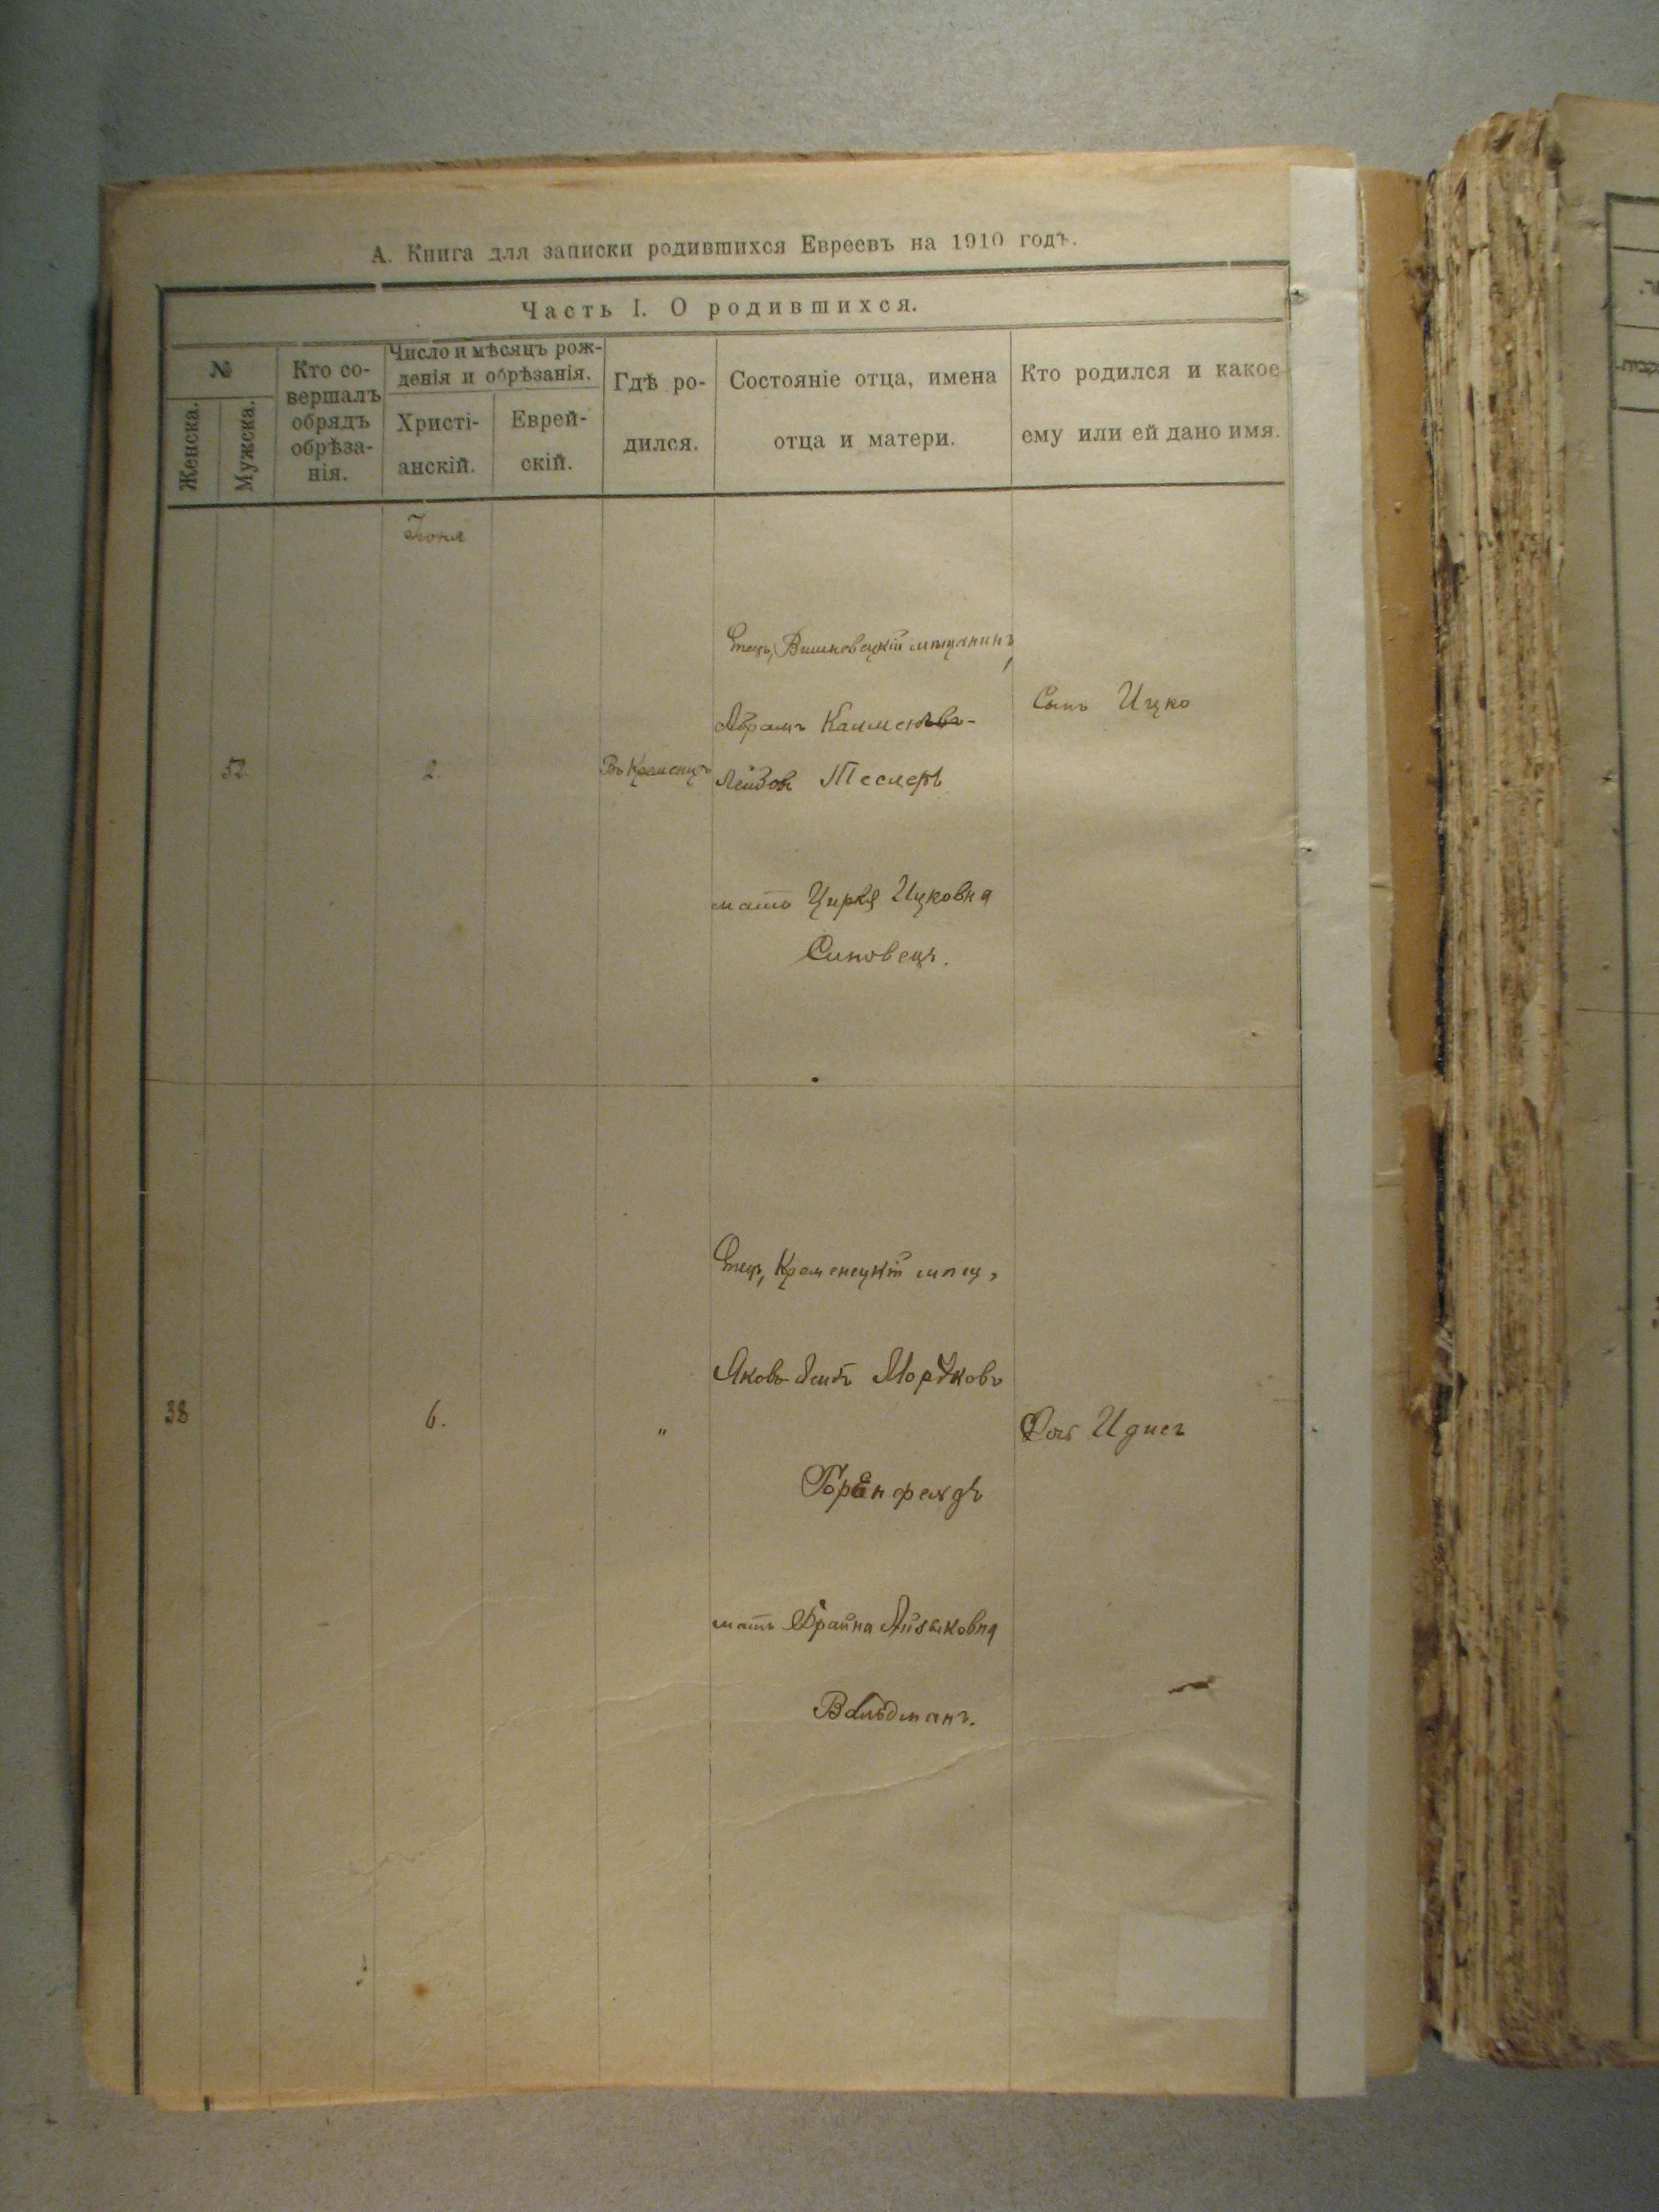 А. Книга для записки родившихся Евреевъ на 1910 годъ.
Часть I. О родившихся.
№
Женска.
Мужска.
Кто со-
вершалъ
обрядъ
обрѣза-
нія.
Число и мѣсяцъ рож-
денія и обрѣзанія.
Христі-
анскій.
Еврей-
скій.
Гдѣ ро-
дился.
Состояніе отца, имена
отца и матери.
Кто родился и какое
ему или ей дано имя.
Іюня
52
2.
Въ Кременцѣ
Отецъ, Вишневецкій мѣщанинъ,
Абрамъ
Лейбовъ Теслеръ
мать Ицковна
Синовецъ.
Сынъ Ицко
38
6.
"
Отецъ, Кременецкій мѣщ.,
Яковъ-Лейбъ Мордковъ
Горенфельдъ
мать Фрайна Айзыковна
Вальдманъ.
Дочь Идисъ